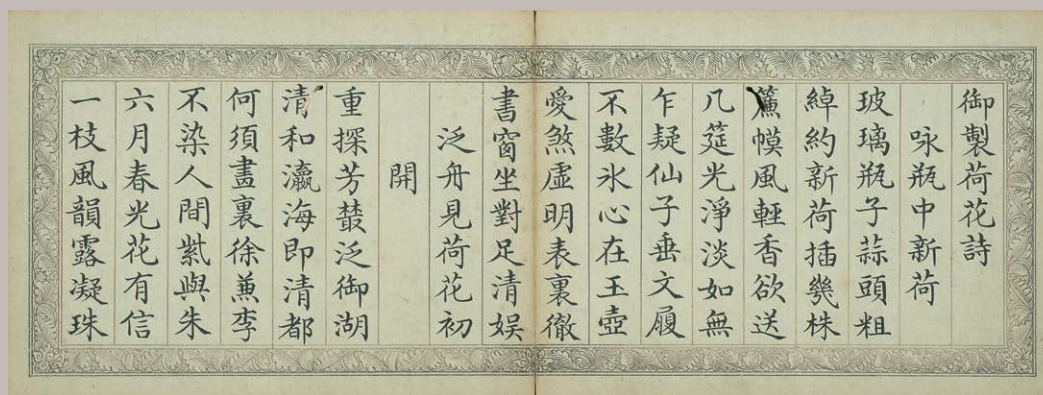 御製荷花詩
咏瓶中新荷
玻璃瓶子蒜頭粗
綽約新荷插幾株
簾幙風輕香欲送
几筵光淨淡如無
乍疑仙子乘文履
不數氷心在玉壺
愛煞虛明表裏徹
書窗坐對足清娛
泛舟見荷花初
開
重探芳叢泛御湖
清和瀛海即清都
何須畫裏徐兼李
不染人間紫與朱
六月春光花有信
一枝風韻露凝珠